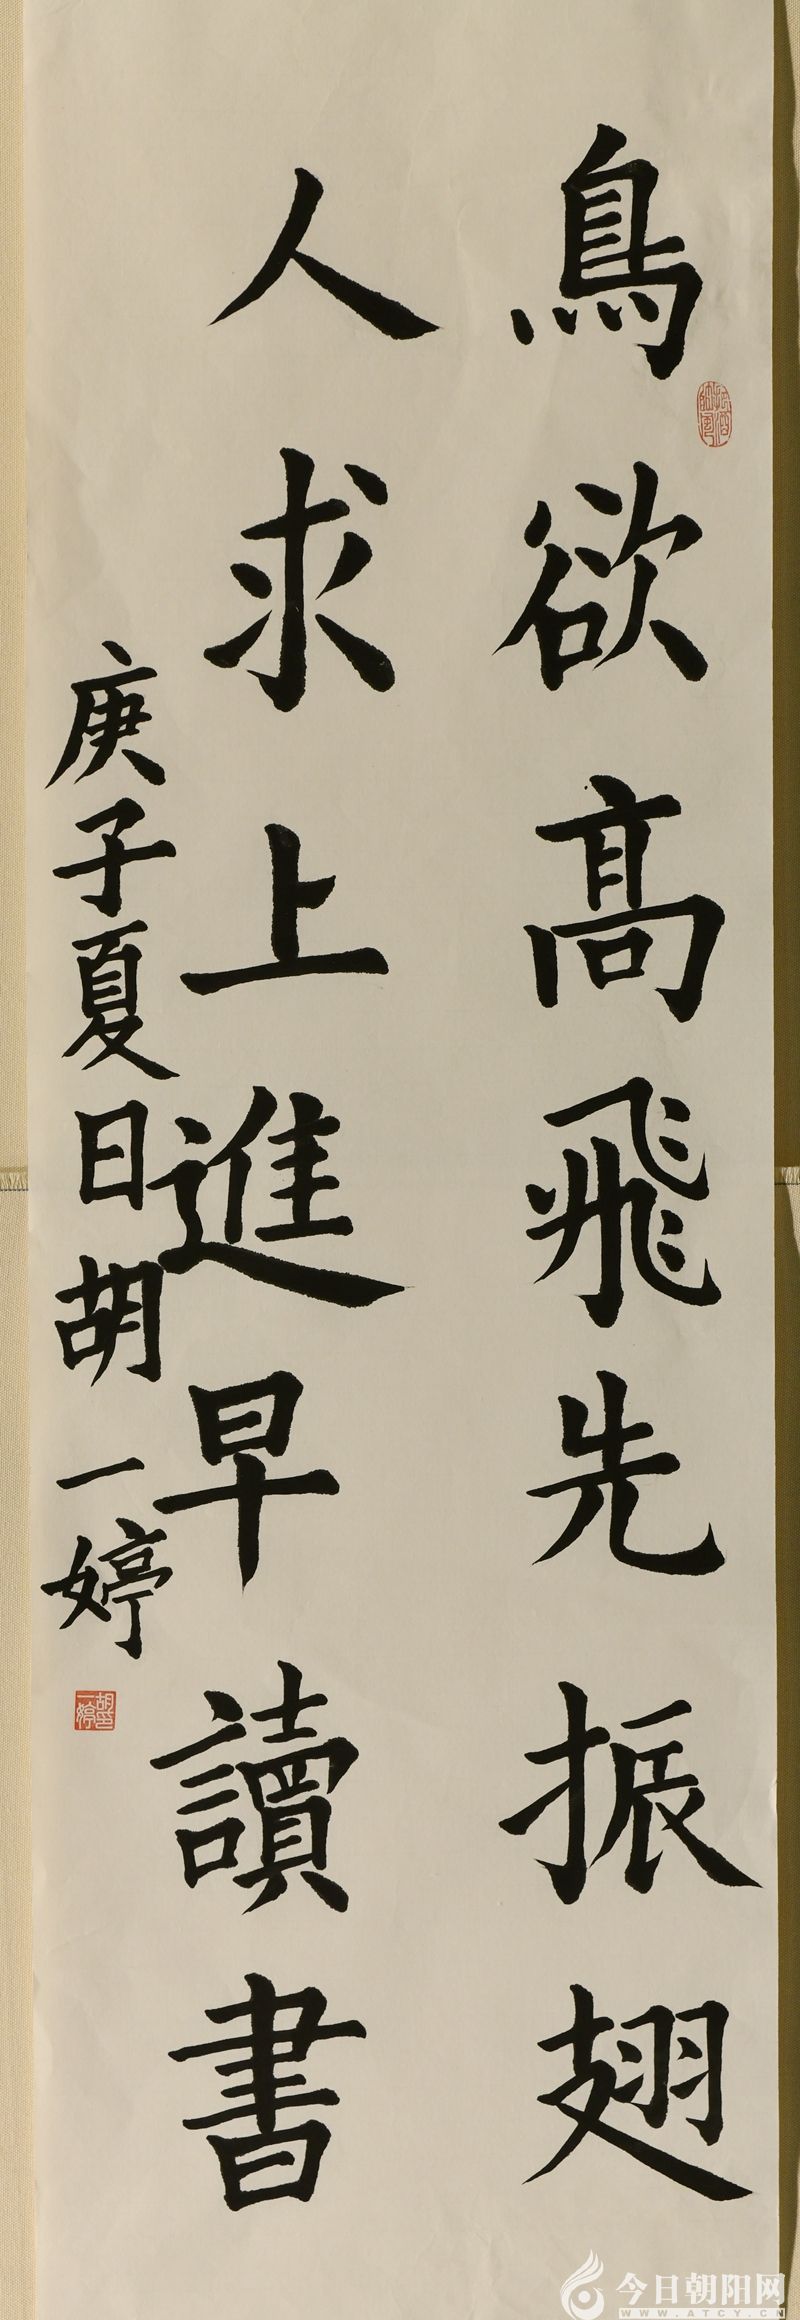 鳥欲高飛先振翅
人求上進早讀書
庚子夏日胡一婷
胡一婷印
今日朝阳网
WWW.ATCY.CN